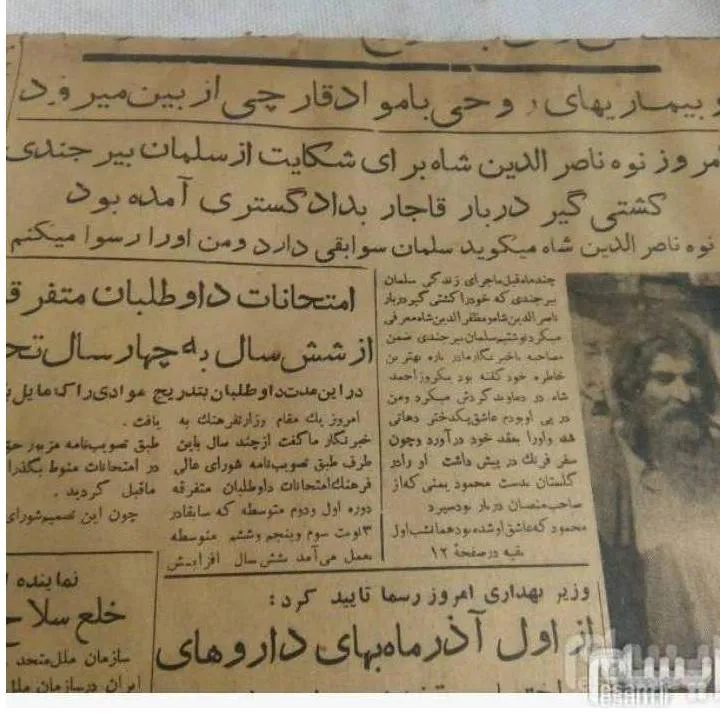 و بیماریهای روحی با مواد قارچی از بین میرود
امروز نوه ناصر الدین شاه برای شکایت از سلمان بیرجندی
کشتی گیر دربار قاجار بدادگستری آمده بود
نوه ناصر الدین شاه میگوید سلمان سوابقی دارد ومن اورا رسوا میکنم
چندماه قبل ماجرای زندگی سلمان
بیرجندی که خودرا کشتی گیر دربار
ناصر الدین شاه و مظفر الدین شاه معرفی
میکرد نوشتیم سلمان بیرجندی ضمن
مصاحبه باخبرنگار ما در باره بهترین
خاطره خود گفته بود یکروز احمد
شاه در دماوند گردش میکرد ومن
در پی او بودم عاشق یکدختر دهاتی
شد واورا بعقد خود درآورد وچون
سفر فرنگ در پیش داشت او رادر
گلستان بدست محمود یمنی که از
صاحبمنصبان دربار بود سپرد
محمود که عاشق او شده بود همانشب اول
بقیه در صفحهٔ ۱۲
امتحانات داوطلبان متفرقه
از شش سال به چهار سال
در این مدت داوطلبان بتدریج موادی را که مایل
امروز یک مقام وزارتفرهنگ به
خبرنگار ما گفت از چند سال باین
طرف طبق تصویبنامه شورای عالی
فرهنگ امتحانات داوطلبان متفرقه
دوره اول ودوم متوسطه که سابقا در
۳ نوبت سوم وپنجم وششم متوسطه
بعمل می‌آمد بشش سال افزایش
یافت.
طبق تصویبنامه مزبور
در امتحانات منوط بگذرا
ماقبل گردید.
چون این تصمیم شورای
وزیر بهداری امروز رسما تایید کرد:
از اول آذرماه بهای داروهای
نماینده
خلع سلاح
سازمان ملل متحد
ایران در سازمان ملل
ایسام
esam.ir